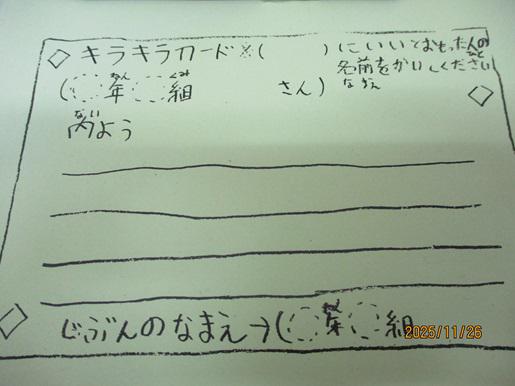 ◇ キラキラカード※(　　　)にいいとおもった人の
名前をかいてください
なまえ
(　年　組　　　さん)
ねん　くみ
内よう
ない
じぶんのなまえ→(　年　組
2025/11/26